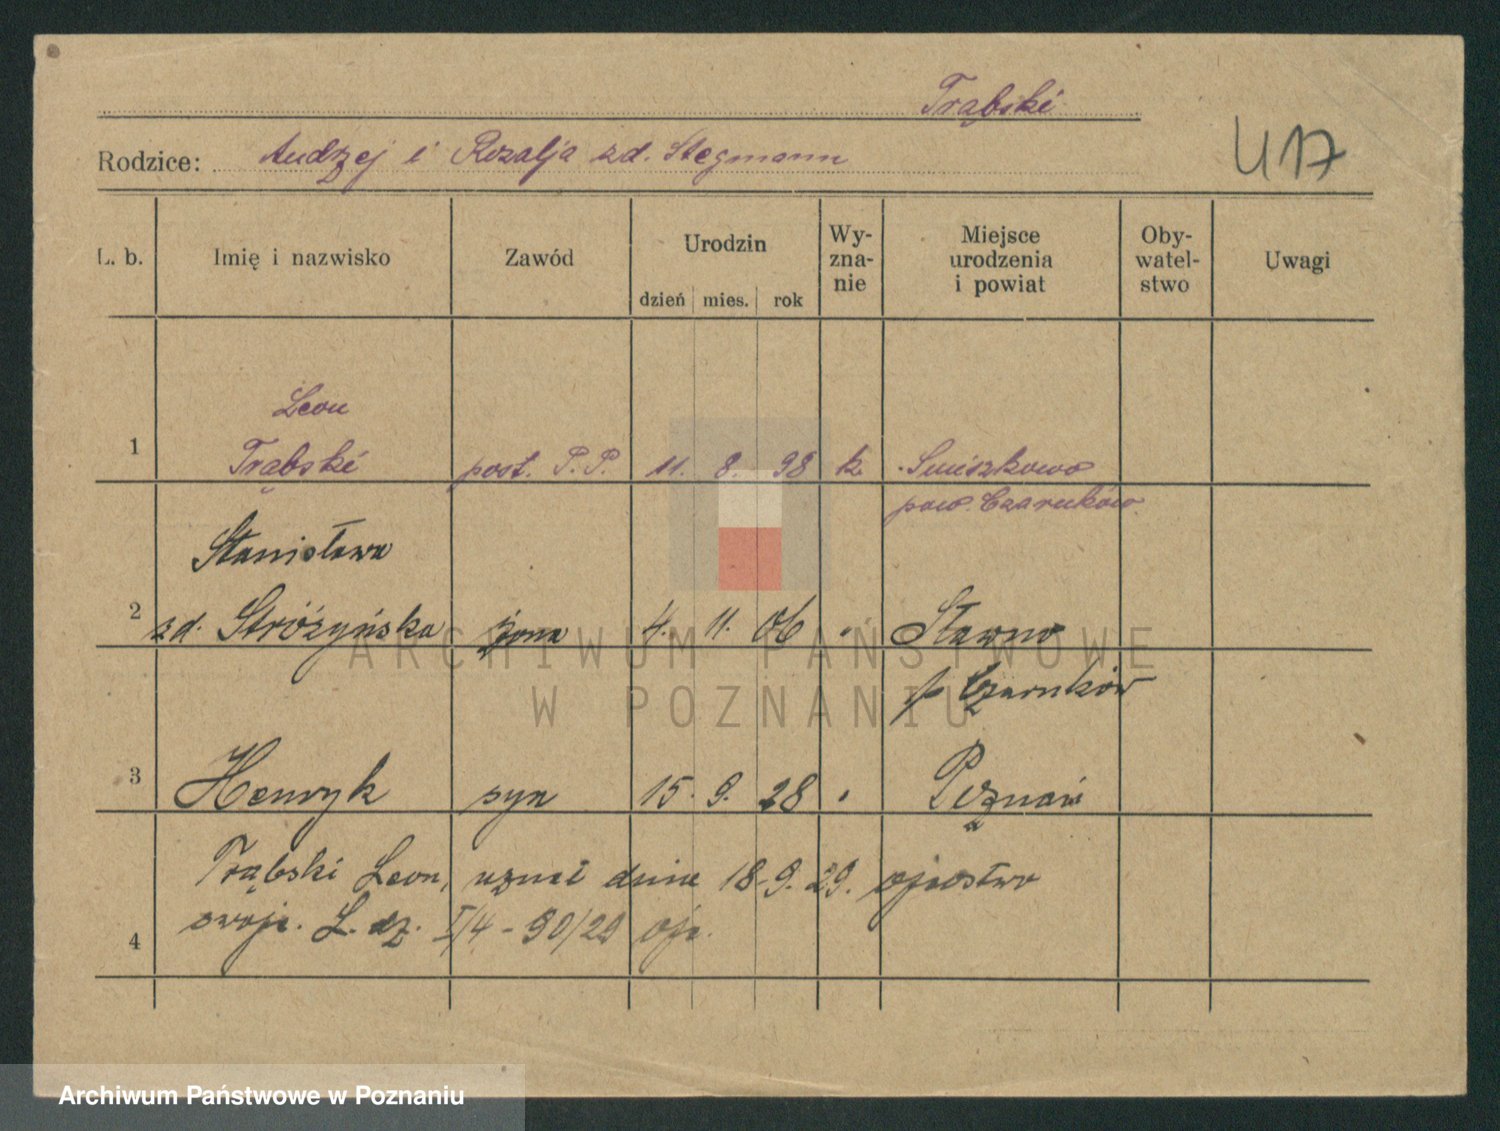 Trąbski
Rodzice: Andrzej i Rozalja zd. Stegmann
U 17
L. b. Imię i nazwisko Zawód Urodzin dzień mies. rok Wy-zna-nie Miejsce urodzenia i powiat Oby-watel-stwo Uwagi
Leon
1 Trąbski post. P.P. 11. 8. 98 k. Śmiszkowo
pow. Czarnków
Stanisława
2 zd. Stróżyńska żona 4. 11. 06 " Sławno
p. Czarnków
3 Henryk syn 15. 9. 28 " Poznań
Trąbski Leon, uznał dnia 18.9.29. ojcostwo
4 swoje. L. dz. I/4 - 90/29
ARCHIWUM PAŃSTWOWE
W POZNANIU
Archiwum Państwowe w Poznaniu